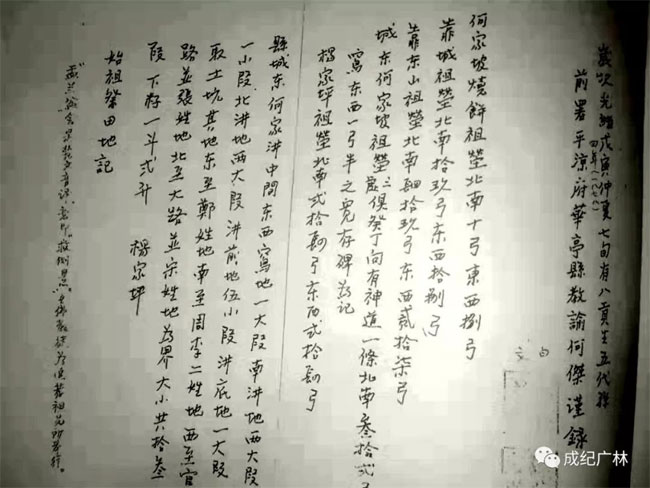 歲次光緒戊寅仲夏七旬有八貢生五代孫
四年(一八七八)
前署平涼府華亭縣教諭何傑謹錄
何家坡燒餅祖塋北南十弓東西捌弓
靠城祖塋北南拾玖弓東西拾捌弓
靠东山祖塋北南 拾玖弓东西貳拾柒弓
城东何家坡祖塋二 俱癸丁向有神道一條北南叁拾弍
寬东西一弓半之宽有碑为记
楊家坪祖塋北南弍拾 弓东西弍拾 弓
縣城东何家湃中間东西寬地一大段南湃地西大段
一小段北湃地西大段湃前地伍小段湃底地一大段
取土坑其地东至鄭姓地南至周李二姓地西至官
路並張姓地北至大路並宗姓地为界大小共拾叁
段下籽一斗弍升 楊家坪
始祖祭田地記
成纪广林